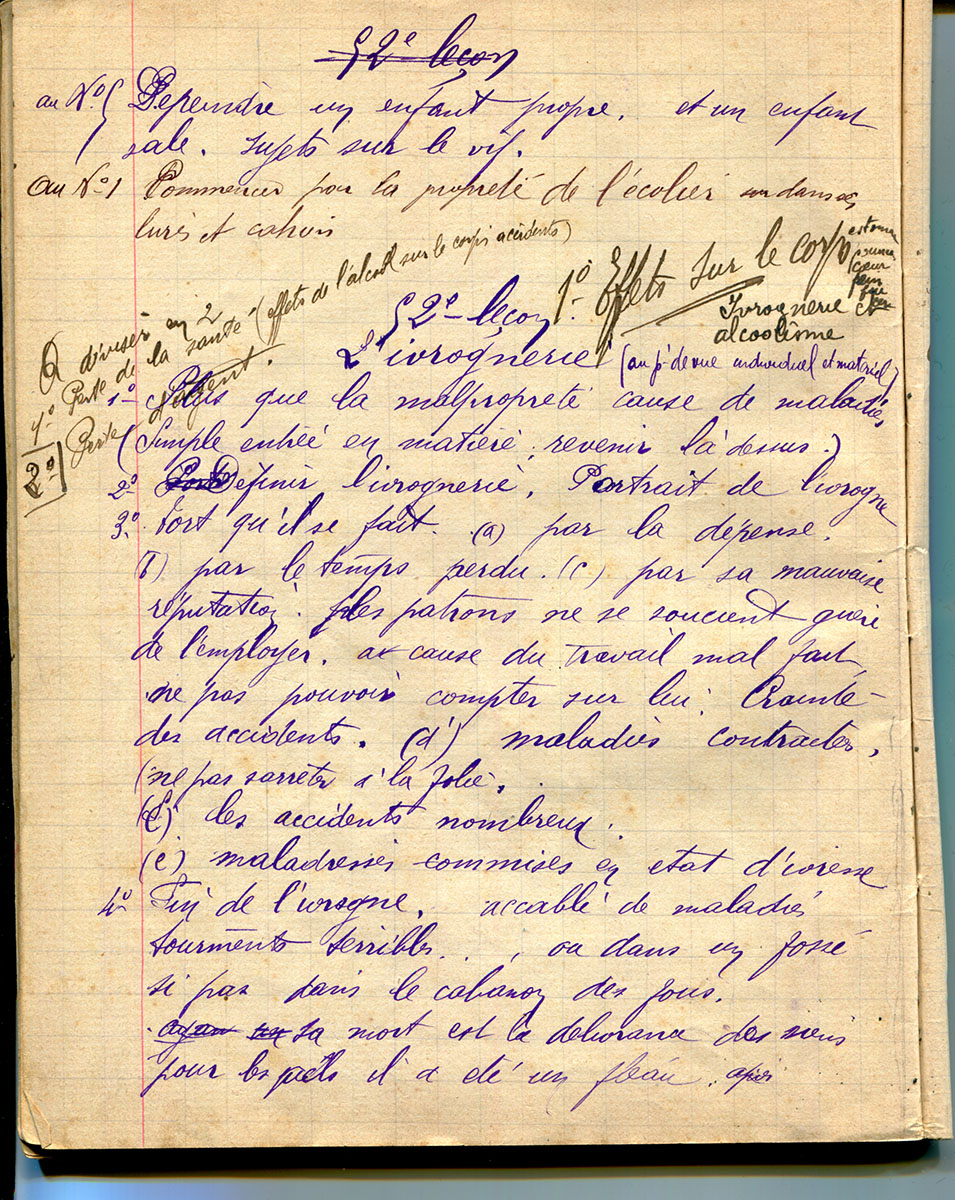 § 2e leçon
au No 5 Depeindre un enfant propre. et un enfant
sale. Sujets sur le vif.
Au No 1 Commencer par la propreté de l'écolier dans ses
livres et cahiers
A diviser en 2
1o Perte de la santé (effets de l'alcool sur le corps accidents)
2o Perte d'argent.
1o Effets sur le corps
estomac
coeur
Ivrognerie et
alcoolisme
§ 2e leçon
L'ivrognerie (au pt de vue individuel et matériel)
1o que la malpropreté cause de maladies
(Simple entrée en matière, revenir là dessus.)
2o Définir l'ivrognerie. Portrait de l'ivrogne
3o Tort qu'il se fait. (a) par la dépense.
(b) par le temps perdu. (c) par sa mauvaise
réputation. les patrons ne se soucient guère
de l'employer. a cause du travail mal fait,
ne pas pouvoir compter sur lui. Crainte
des accidents. (d) maladies contractées,
(ne pas sarreter à la folie.
les accidents nombreux.
(e) maladresses commises en etat d'ivresse
4o Fin de l'ivrogne. accablé de maladies
tourments terribles..., ou dans un fossé
si pas dans le cabanon des fous.
Sa mort est la délivrance des siens
pour lesquels il a été un fléau. après